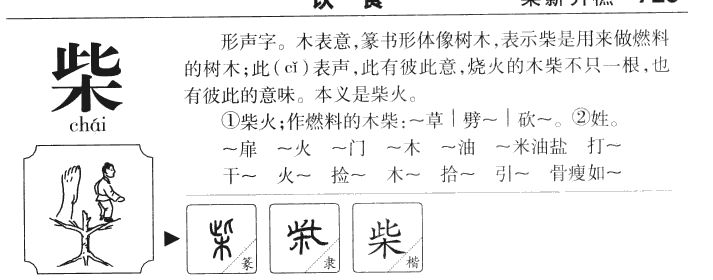 饮 食
柴 chái
形声字。木表意,篆书形体像树木,表示柴是用来做燃料
的树木;此(cǐ)表声,此有彼此意,烧火的木柴不只一根,也
有彼此的意味。本义是柴火。
①柴火;作燃料的木柴:~草|劈~|砍~。②姓。
~扉 ~火 ~门 ~木 ~油 ~米油盐 打~
干~ 火~ 捡~ 木~ 拾~ 引~ 骨瘦如~
柴 篆
柴 隶
柴 楷